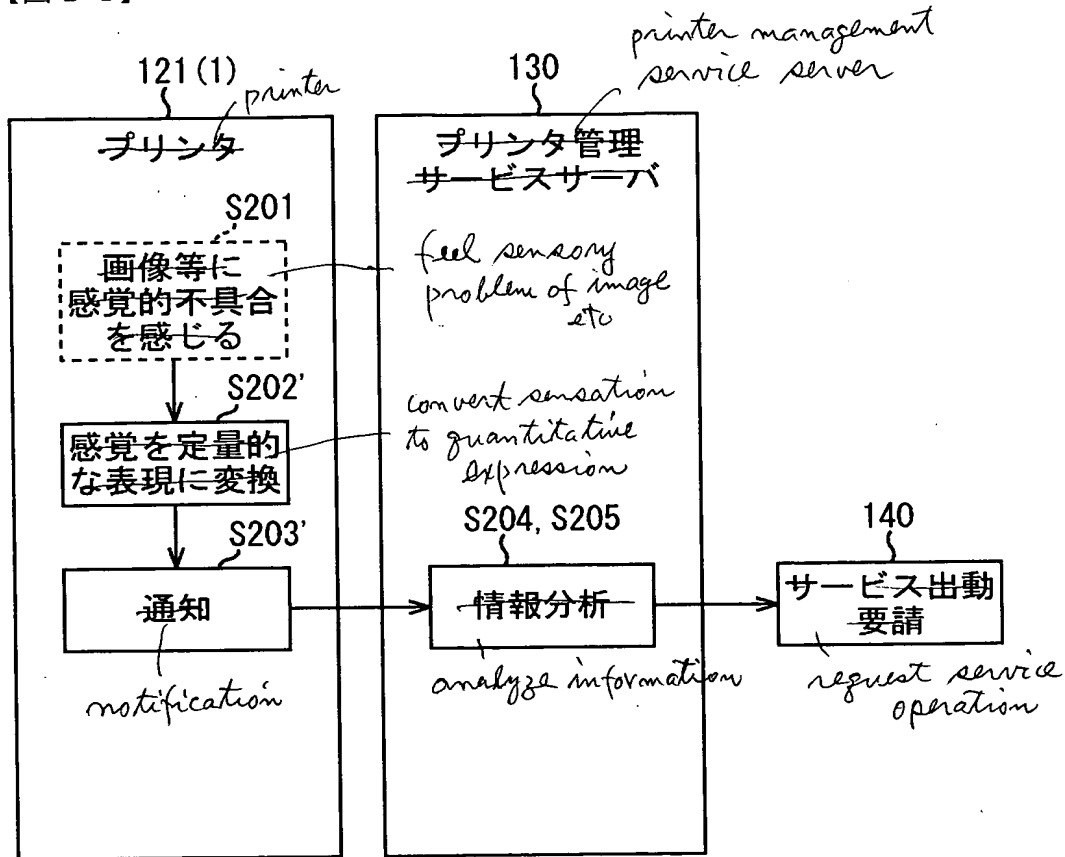 121(1)
printer
プリンタ
S201
画像等に
感覚的不具合
を感じる
S202'
感覚を定量的
な表現に変換
S203'
通知
notification
130
printer management
service server
プリンタ管理
サービスサーバ
feel sensory
problem of image
etc
convert sensation
to quantitative
expression
S204, S205
情報分析
analyze information
140
サービス出動
要請
request service
operation